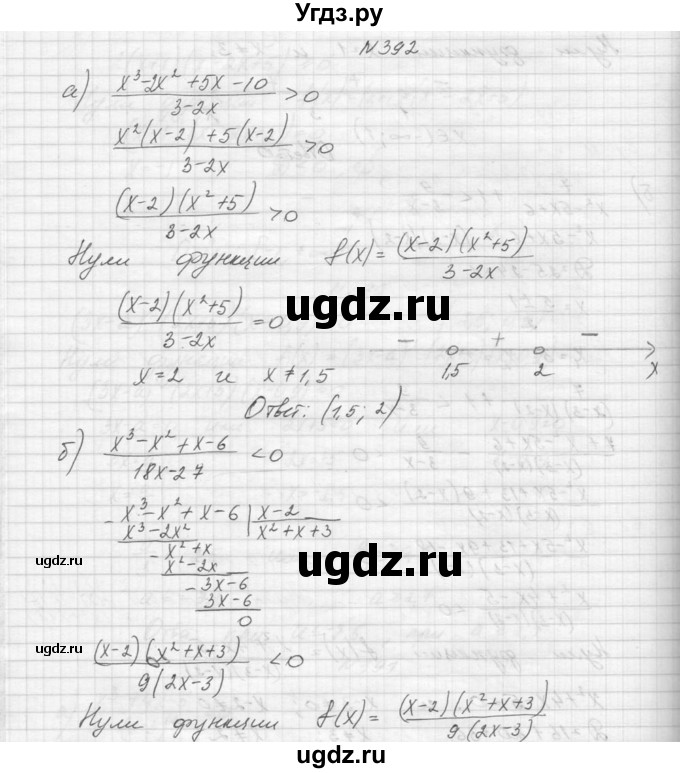 Угдз.ру
N392
а) (x³-2x²+5x-10)/(3-2x) >0
(x²(x-2)+5(x-2))/(3-2x) >0
(x-2)(x²+5)/(3-2x) >0
Нули функции f(x)= (x-2)(x²+5)/(3-2x)
(x-2)(x²+5)/(3-2x) =0
ugdz.ru
ugdz.ru
− + −
1,5 2 x
x=2 и x≠1,5
Ответ: (1,5; 2)
б) (x³-x²+x-6)/(18x-27) <0
- x³-x²+x-6 | x-2
x³-2x² x²+x+3
- x²+x
x²-2x
- 3x-6
3x-6
0
ugdz.ru
ugdz.ru
ugdz.ru
(x-2)(x²+x+3)/9(2x-3) <0
Нули функции f(x)= (x-2)(x²+x+3)/9(2x-3)
ugdz.ru
ugdz.ru